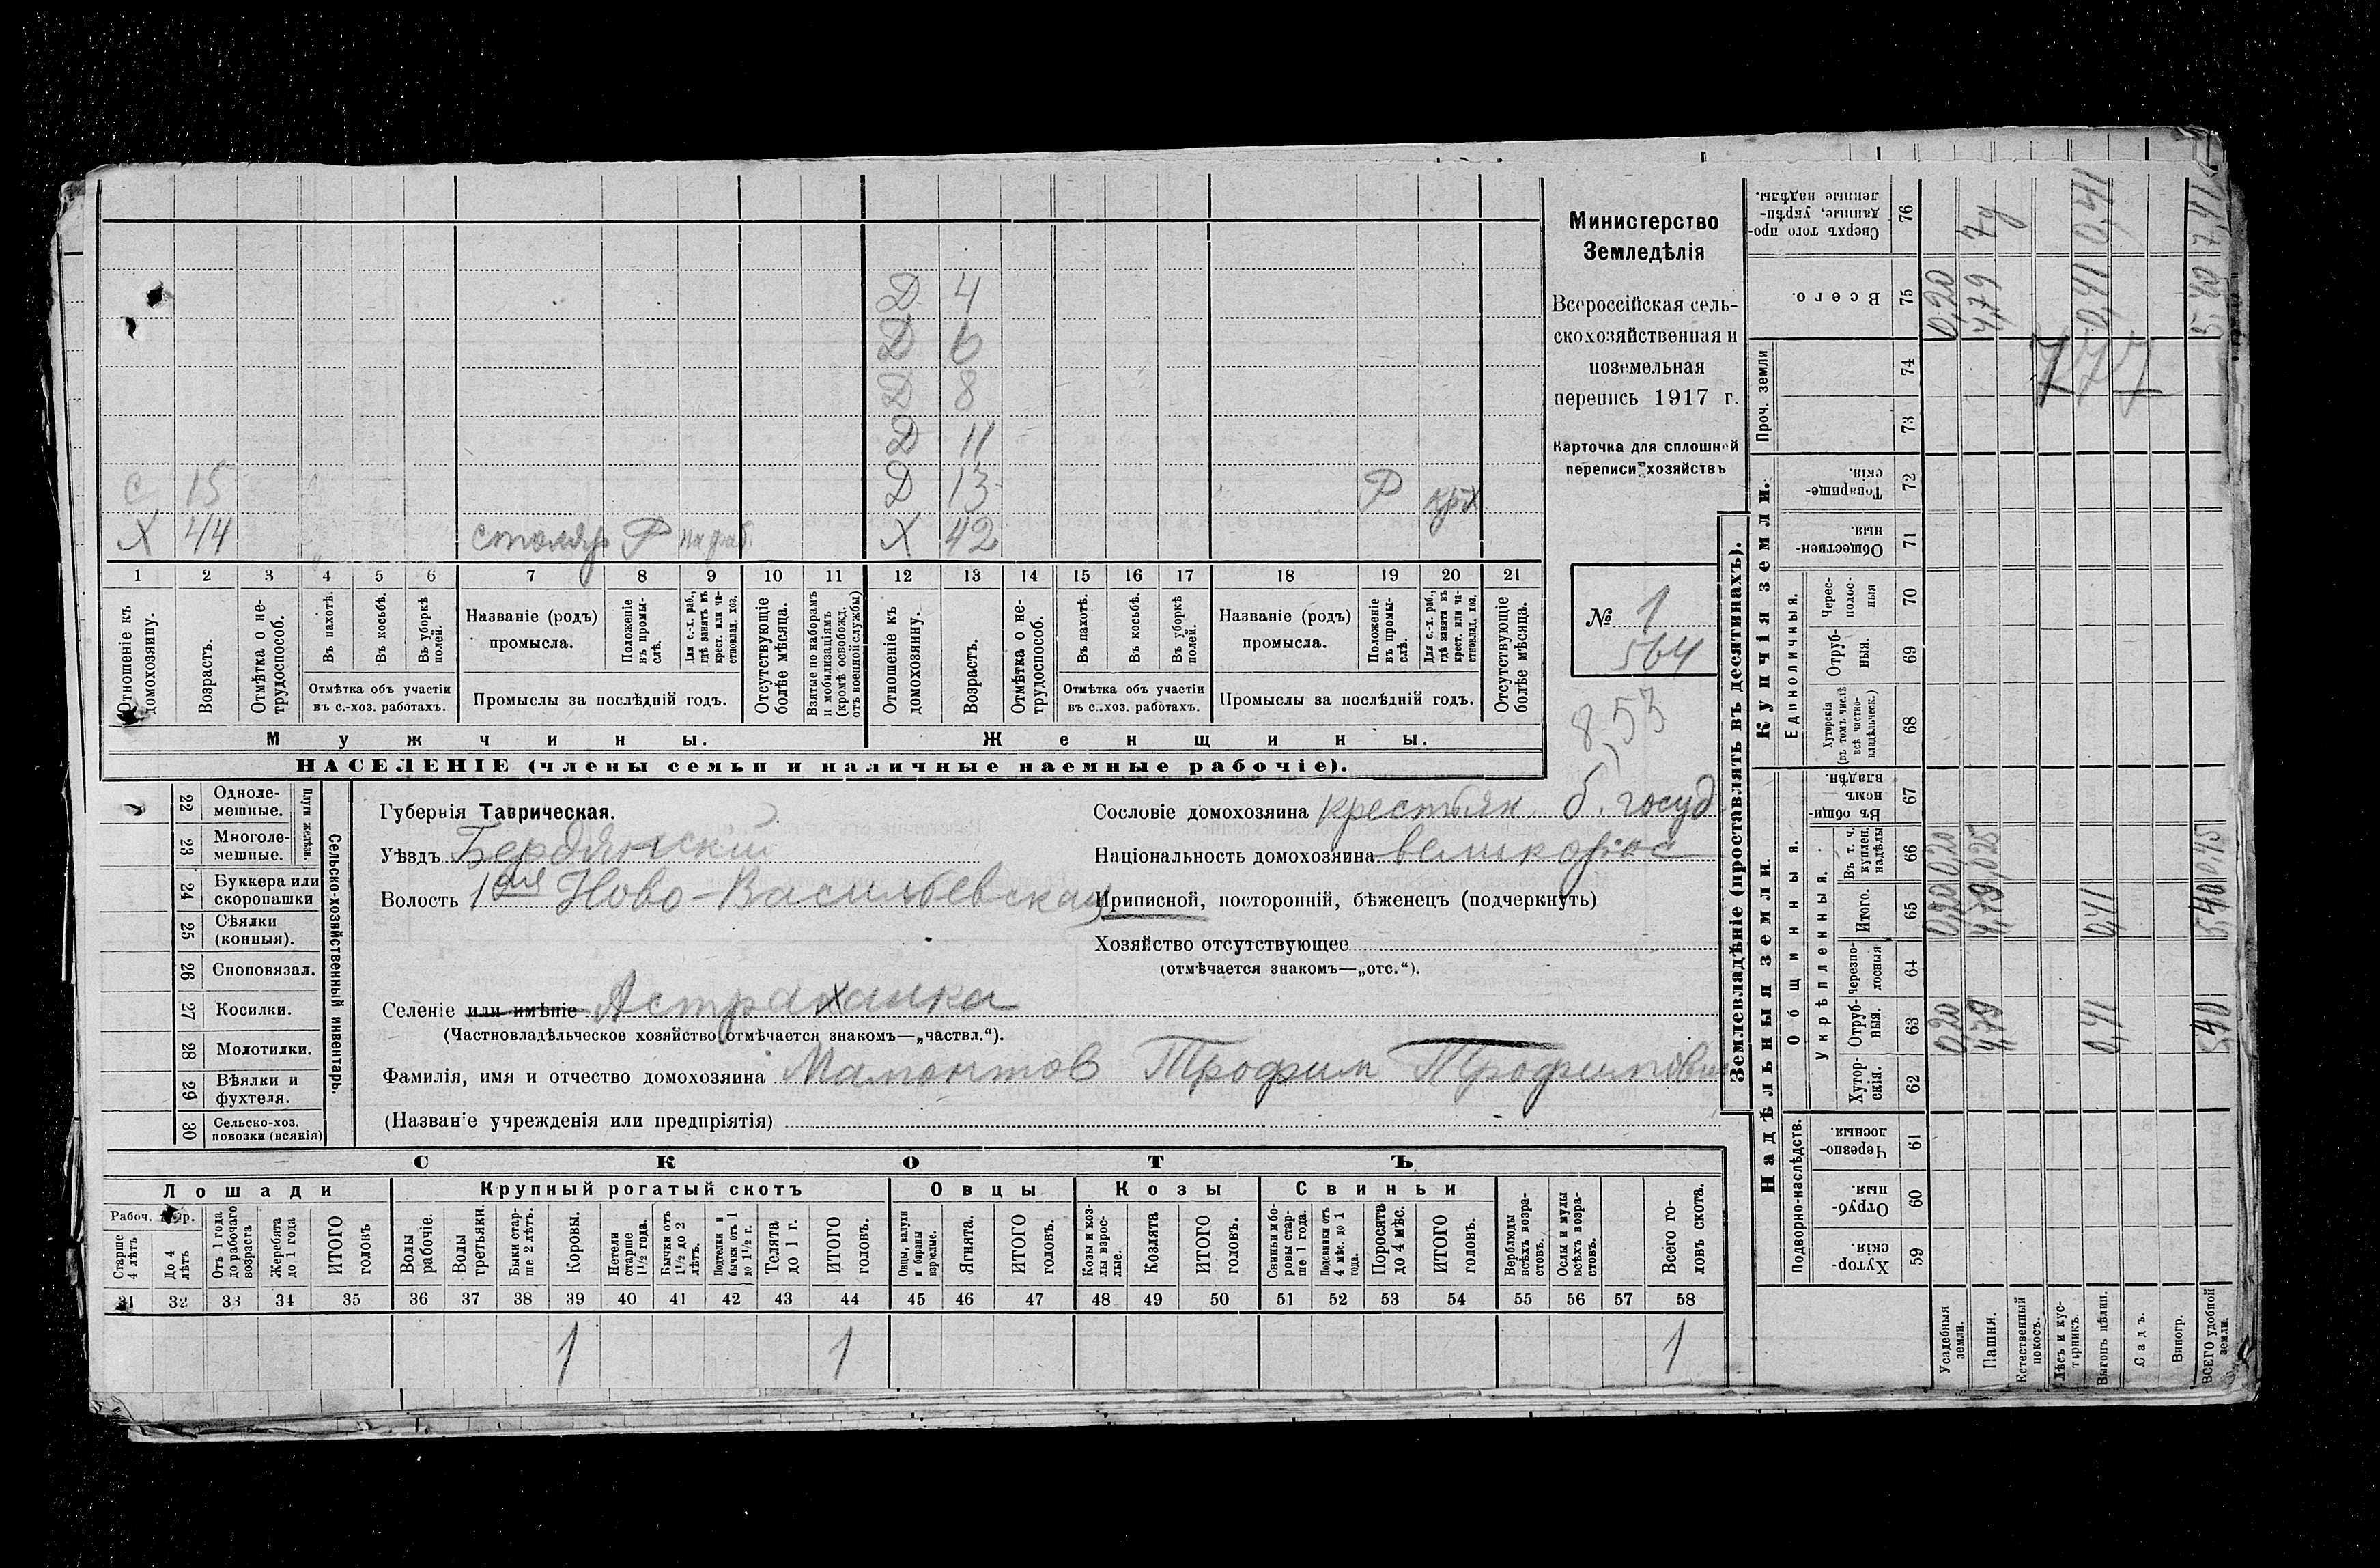 Министерство
Земледѣлія
Всероссійская сель-
скохозяйственная и
поземельная
перепись 1917 г.
Карточка для сплошной
переписи хозяйствъ
№ 1
564
8,53
Д 4
Д 6
Д 8
Д 11
С 15 Д 13
Х 44 столяр Р на раб. Х 42 Р
1 2 3 4 5 6 7 8 9 10 11 12 13 14 15 16 17 18 19 20 21
Отношеніе къ домохозяину.
Возрастъ.
Отмѣтка о не-трудоспособ.
Въ пахотѣ.
Въ косьбѣ.
Въ уборкѣ полей.
Отмѣтка объ участіи въ с.-хоз. работахъ.
Названіе (родъ) промысла.
Положеніе въ промы-слѣ.
Для с.-х. раб., гдѣ занятъ въ крест. или ча-стновлад. хоз.
Промыслы за послѣдній годъ.
Отсутствующіе болѣе мѣсяца.
Взятые по наборамъ и мобилизаціямъ (кромѣ освобожд. отъ военной службы)
Отношеніе къ домохозяину.
Возрастъ.
Отмѣтка о не-трудоспособ.
Въ пахотѣ.
Въ косьбѣ.
Въ уборкѣ полей.
Отмѣтка объ участіи въ с.-хоз. работахъ.
Названіе (родъ) промысла.
Положеніе въ промы-слѣ.
Для с.-х. раб., гдѣ занята въ крест. или ча-стновлад. хоз.
Промыслы за послѣдній годъ.
Отсутствующіе болѣе мѣсяца.
Мужчины. Женщины.
НАСЕЛЕНІЕ (члены семьи и наличные наемные рабочіе).
22 Одноле-мешные.
23 Многоле-мешные.
Плуги желѣзн.
24 Буккера или скоропашки
25 Сѣялки (конныя).
26 Сноповязал.
27 Косилки.
28 Молотилки.
29 Вѣялки и фухтеля.
30 Сельско-хоз. повозки (всякія)
Сельско-хозяйственный инвентарь.
Губернія Таврическая.
Уѣздъ Бердянский
Волость 1ая Ново-Васильевская
Селеніе или имѣніе Астраханка
(Частновладѣльческое хозяйство отмѣчается знакомъ—„частвл.“).
Фамилія, имя и отчество домохозяина Мамонтов Трофим Трофимович
(Названіе учрежденія или предпріятія)
Сословіе домохозяина крестьян. б. госуд
Національность домохозяина великорос
Приписной, посторонній, бѣженецъ (подчеркнуть)
Хозяйство отсутствующее
(отмѣчается знакомъ—„отс.“).
СКОТЪ
Лошади Крупный рогатый скотъ Овцы Козы Свиньи
Рабоч.
Старше 4 лѣтъ
До 4 лѣтъ
Отъ 1 года до рабочаго возраста
Жеребята до 1 года
ИТОГО головъ
Волы рабочіе.
Волы третьяки.
Быки стар-ше 2 лѣтъ.
Коровы.
Нетели старше 1½ года.
Бычки отъ 1½ до 2 лѣтъ.
Подтелки и бычки отъ 1 до 1½ г.
Телята до 1 г.
ИТОГО головъ.
Овцы, валухи и бараны взрослые.
Ягнята.
ИТОГО головъ.
Козы и коз-лы взрос-лые.
Козлята
ИТОГО головъ.
Свиньи и бо-ровы стар-ше 1 года.
Подсвинки отъ 4 мѣс. до 1 года.
Поросята до 4 мѣс.
ИТОГО головъ.
Верблюды всѣхъ возра-стовъ.
Ослы и мулы всѣхъ возра-стовъ.
Всего го-ловъ скота.
31 32 33 34 35 36 37 38 39 40 41 42 43 44 45 46 47 48 49 50 51 52 53 54 55 56 57 58
1 1 1
Землевладѣніе (проставлять въ десятинахъ).
Надѣльныя земли.
Купчія земли.
Подворно-наслѣдств.
Общинныя.
Укрѣпленныя.
Единоличныя.
Проч. земли
Хутор-скія. 59
Отруб-ныя. 60
Черезпо-лосныя. 61
Хутор-скія. 62
Отруб-ныя. 63
Черезпо-лосныя 64
Итого. 65
Въ т. ч. куплен. надѣлы 66
Въ общи-номъ владѣн. 67
Хуторскія (въ томъ числѣ всѣ частно-владѣльческ.) 68
Отруб-ныя. 69
Черес-полос-ныя 70
Обществен-ныя. 71
Товарище-скія. 72
73
74
Всего. 75
Сверхъ того про-данные, укрѣп-ленные надѣлы. 76
Усадебныя земли. 0,20 0,20 0,20 0,20
Пашня. 4,79 4,79 0,25 4,79 7
Естественный покосъ.
Лѣсъ и кус-тарникъ.
Выгонъ цѣлин. 0,41 0,41 0,41 0,41
Садъ.
Виногр.
ВСЕГО удобной земли. 5,40 5,40 0,45 5,40 7,41
777